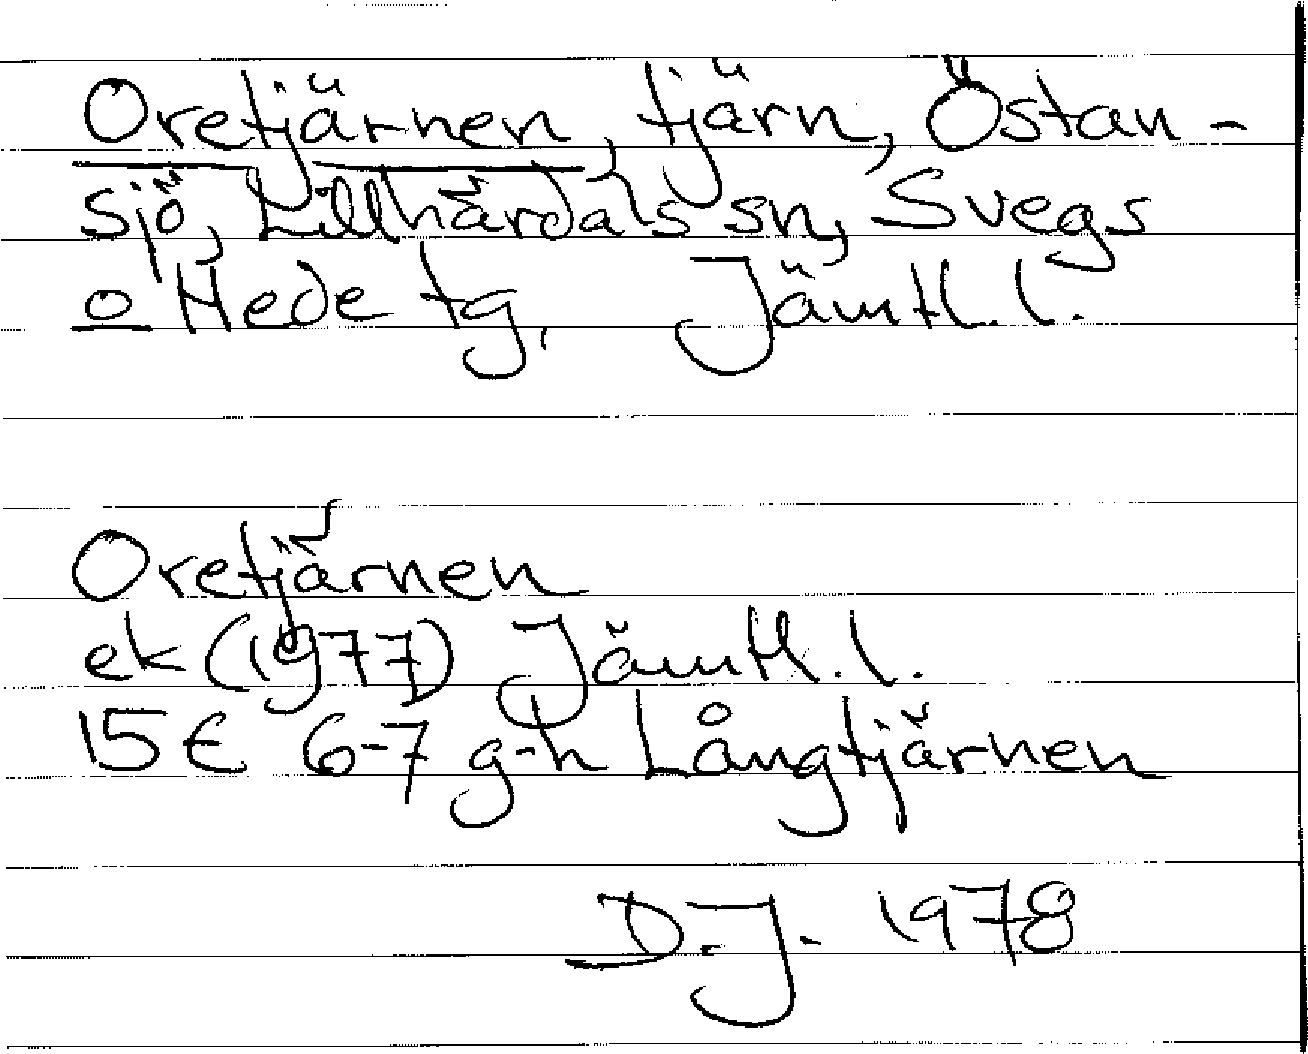 Oretjärnen, tjärn, Östan-
sjö, Lillhärdals sn, Svegs
o Hede tg, Jämtl. l.
Oretjärnen
ek (1977) Jämtl. l.
15 E 6-7 g-h Långtjärnen
D.J. 1978